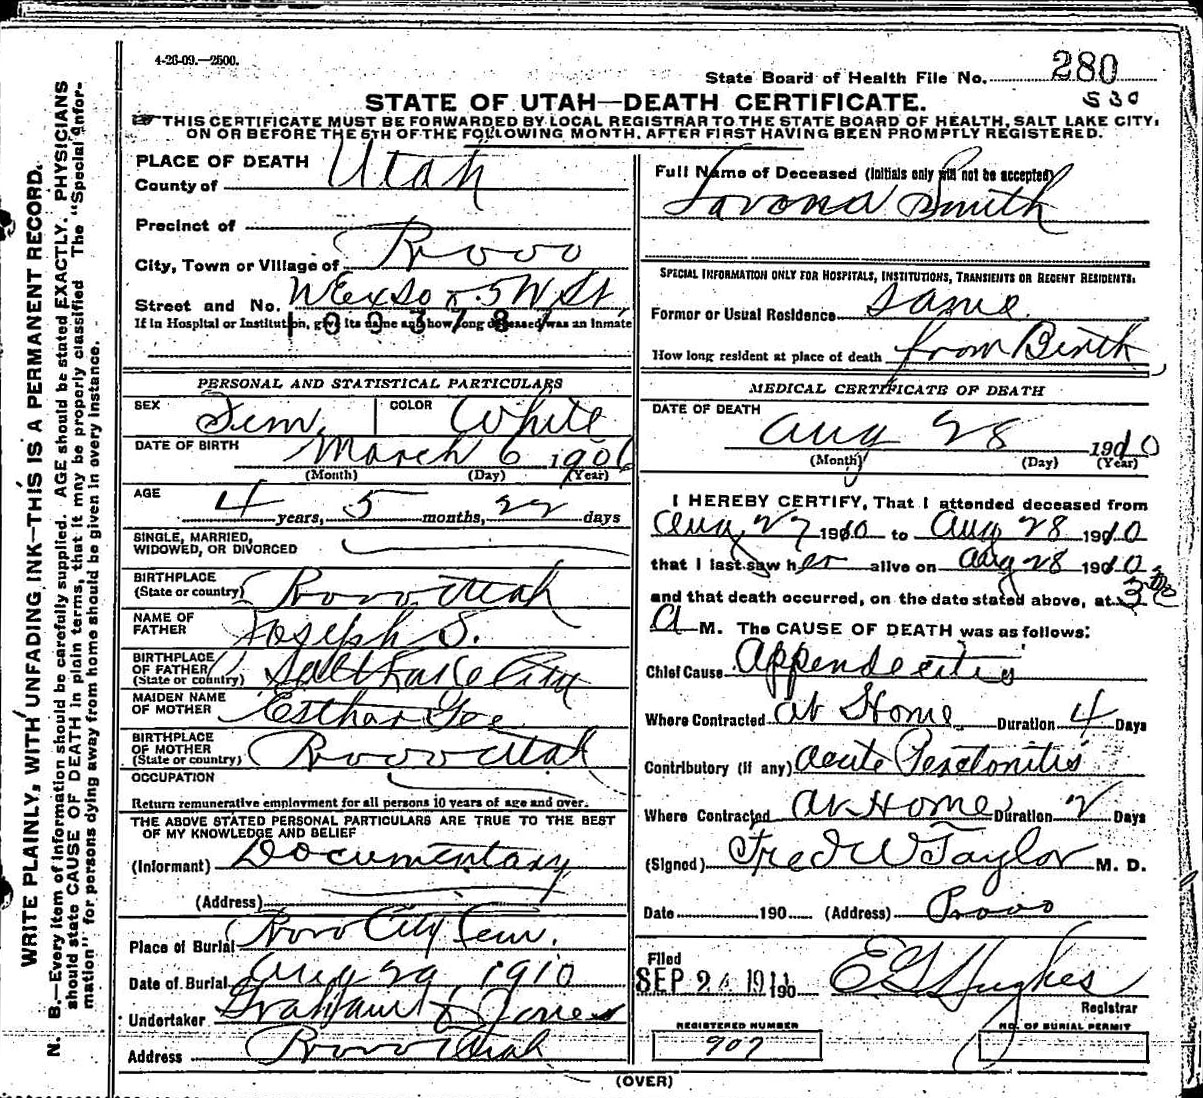 4-26-09.—2500.
State Board of Health File No. 280
530
STATE OF UTAH—DEATH CERTIFICATE.
THIS CERTIFICATE MUST BE FORWARDED BY LOCAL REGISTRAR TO THE STATE BOARD OF HEALTH, SALT LAKE CITY,
ON OR BEFORE THE 5TH OF THE FOLLOWING MONTH, AFTER FIRST HAVING BEEN PROMPTLY REGISTERED.
WRITE PLAINLY, WITH UNFADING INK—THIS IS A PERMANENT RECORD.
N. B.—Every item of information should be carefully supplied. AGE should be stated EXACTLY. PHYSICIANS
should state CAUSE OF DEATH in plain terms, that it may be properly classified. The "Special Infor-
mation" for persons dying away from home should be given in every instance.
PLACE OF DEATH
County of Utah
Precinct of
City, Town or Village of Provo
Street and No. 5 W St
If in Hospital or Institution, give its name and how long deceased was an inmate
1003787
PERSONAL AND STATISTICAL PARTICULARS
SEX Fem COLOR White
DATE OF BIRTH March 6 1906
(Month) (Day) (Year)
AGE 4 years, 5 months, 22 days
SINGLE, MARRIED,
WIDOWED, OR DIVORCED
BIRTHPLACE
(State or country) Provo Utah
NAME OF
FATHER Joseph S.
BIRTHPLACE
OF FATHER
(State or country) Salt Lake City
MAIDEN NAME
OF MOTHER Esthar Gee
BIRTHPLACE
OF MOTHER
(State or country) Provo Utah
OCCUPATION
Return remunerative employment for all persons 10 years of age and over.
THE ABOVE STATED PERSONAL PARTICULARS ARE TRUE TO THE BEST
OF MY KNOWLEDGE AND BELIEF
(Informant) Documentary
(Address)
Place of Burial Provo City Cem.
Date of Burial Aug 29, 1910
Undertaker & Jones
Address Provo Utah
Full Name of Deceased (Initials only will not be accepted)
Lavona Smith
SPECIAL INFORMATION ONLY FOR HOSPITALS, INSTITUTIONS, TRANSIENTS OR RECENT RESIDENTS.
Former or Usual Residence Same
How long resident at place of death from Birth
MEDICAL CERTIFICATE OF DEATH
DATE OF DEATH
Aug 28 1910
(Month) (Day) (Year)
I HEREBY CERTIFY, That I attended deceased from
Aug 27 1910 to Aug 28 1910
that I last saw her alive on Aug 28 1910
and that death occurred, on the date stated above, at 3
A M. The CAUSE OF DEATH was as follows:
Chief Cause Appendecitis
Where Contracted At Home Duration 4 Days
Contributory (if any) Acute Peretonitis
Where Contracted At Home Duration 2 Days
(Signed) Fred W Taylor M. D.
Date 190 (Address) Provo
Filed
SEP 24 1911 190 E G Hughes
Registrar
REGISTERED NUMBER
907
NO. OF BURIAL PERMIT
(OVER)